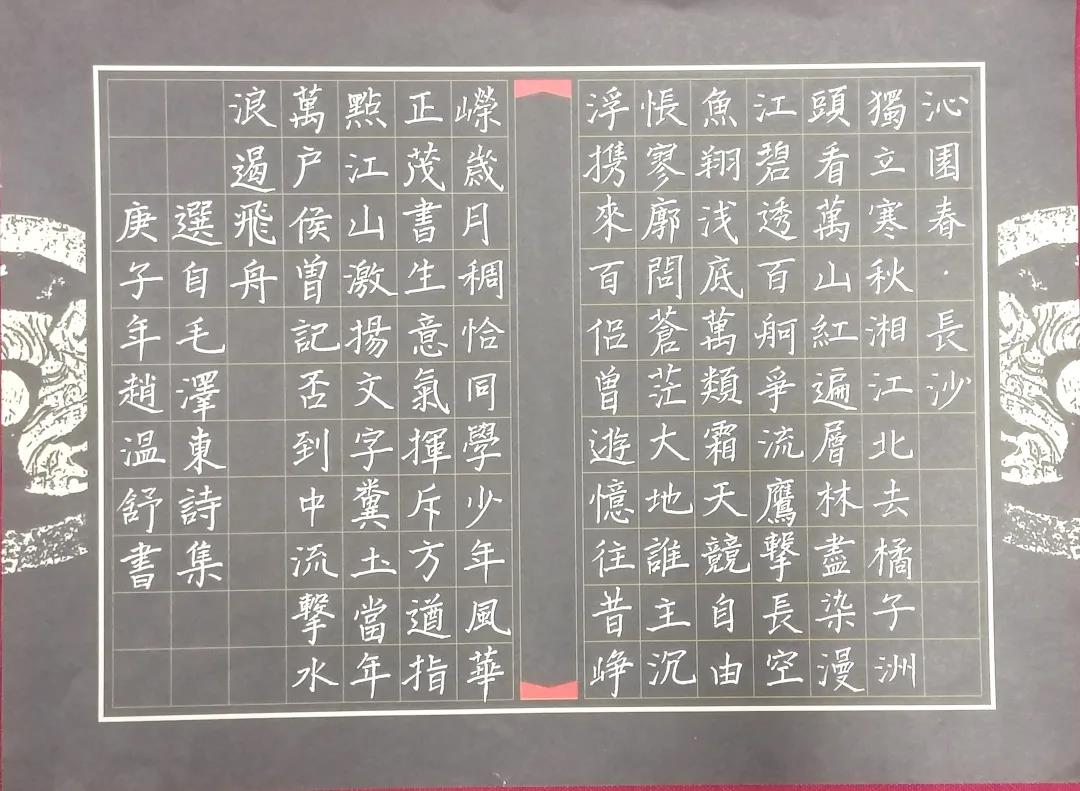 沁園春·長沙
獨立寒秋湘江北去橘子洲
頭看萬山紅遍層林盡染漫
江碧透百舸爭流鷹擊長空
魚翔浅底萬類霜天競自由
悵寥廓問蒼茫大地誰主沉
浮攜來百侣曾遊憶往昔崢
嶸歲月稠恰同學少年風華
正茂書生意氣揮斥方遒指
點江山激揚文字糞土當年
萬户侯曾記否到中流擊水
浪遏飛舟
選自毛澤東詩集
庚子年趙溫舒書